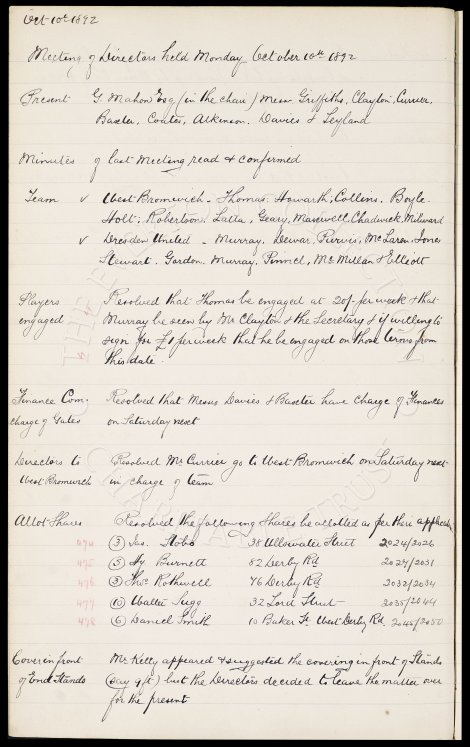 Oct 10th 1892
Meeting of Directors held Monday October 10th 1892
Present G. Mahon Esq (in the chair) Messrs Griffiths, Clayton, Currier,
Baxter, Coates, Atkinson, Davies & Leyland
Minutes of last Meeting read & confirmed
Team v West Bromwich - Thomas, Howarth, Collins, Boyle
Holt, Robertson, Latta, Geary, Maxwell, Chadwick, Milward
v Dresden United - Murray, Dewar, Purvis, McLaren Jones
Stewart, Gordon, Murray, Pinnel, McMillan & Elliott
Players engaged Resolved that Thomas be engaged at 20/- per week & that
Murray be seen by Mr Clayton & the Secretary & if willing to
sign for £1 per week that he be engaged on those terms from
this date.
Finance Com: Resolved that Messrs Davies & Baxter have charge of Finances
charge of Gates on Saturday next
Directors to Resolved Mr Currier go to West Bromwich on Saturday next
West Bromwich in charge of team
Allot Shares Resolved the following Shares be allotted as per there
474 (3) Jas. Stobo 38 Ullswater Street 2024/2026
475 (5) Hy Burnett 82 Derby Rd 2027/2031
476 (3) Thos Rothwell 76 Derby Rd 2032/2034
477 (10) Walter Sugg 32 Lord Street 2035/2044
478 (6) Daniel Smith 10 Baker St West Derby Rd 2045/2050
Cover in front Mr Kelly appeared & suggested the covering in front of Stands
of End Stands (say 9ft) but the Directors decided to leave the matter over
for the present